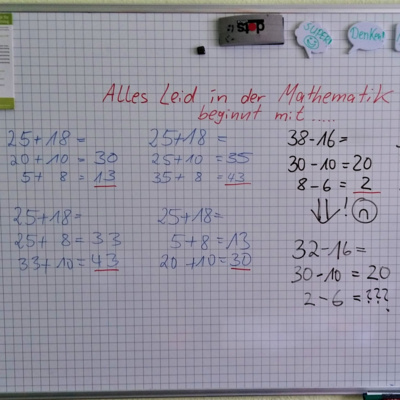 stop
SUPER!
Denken
Alles Leid in der Mathematik
beginnt mit .....
25+18=
20+10=30
5+ 8=13
25+18=
25+10=35
35+ 8=43
38-16=
30-10=20
8-6= 2
!
25+18=
25+ 8=33
33+10=43
25+18=
5+8=13
20+10=30
32-16=
30-10=20
2-6=???